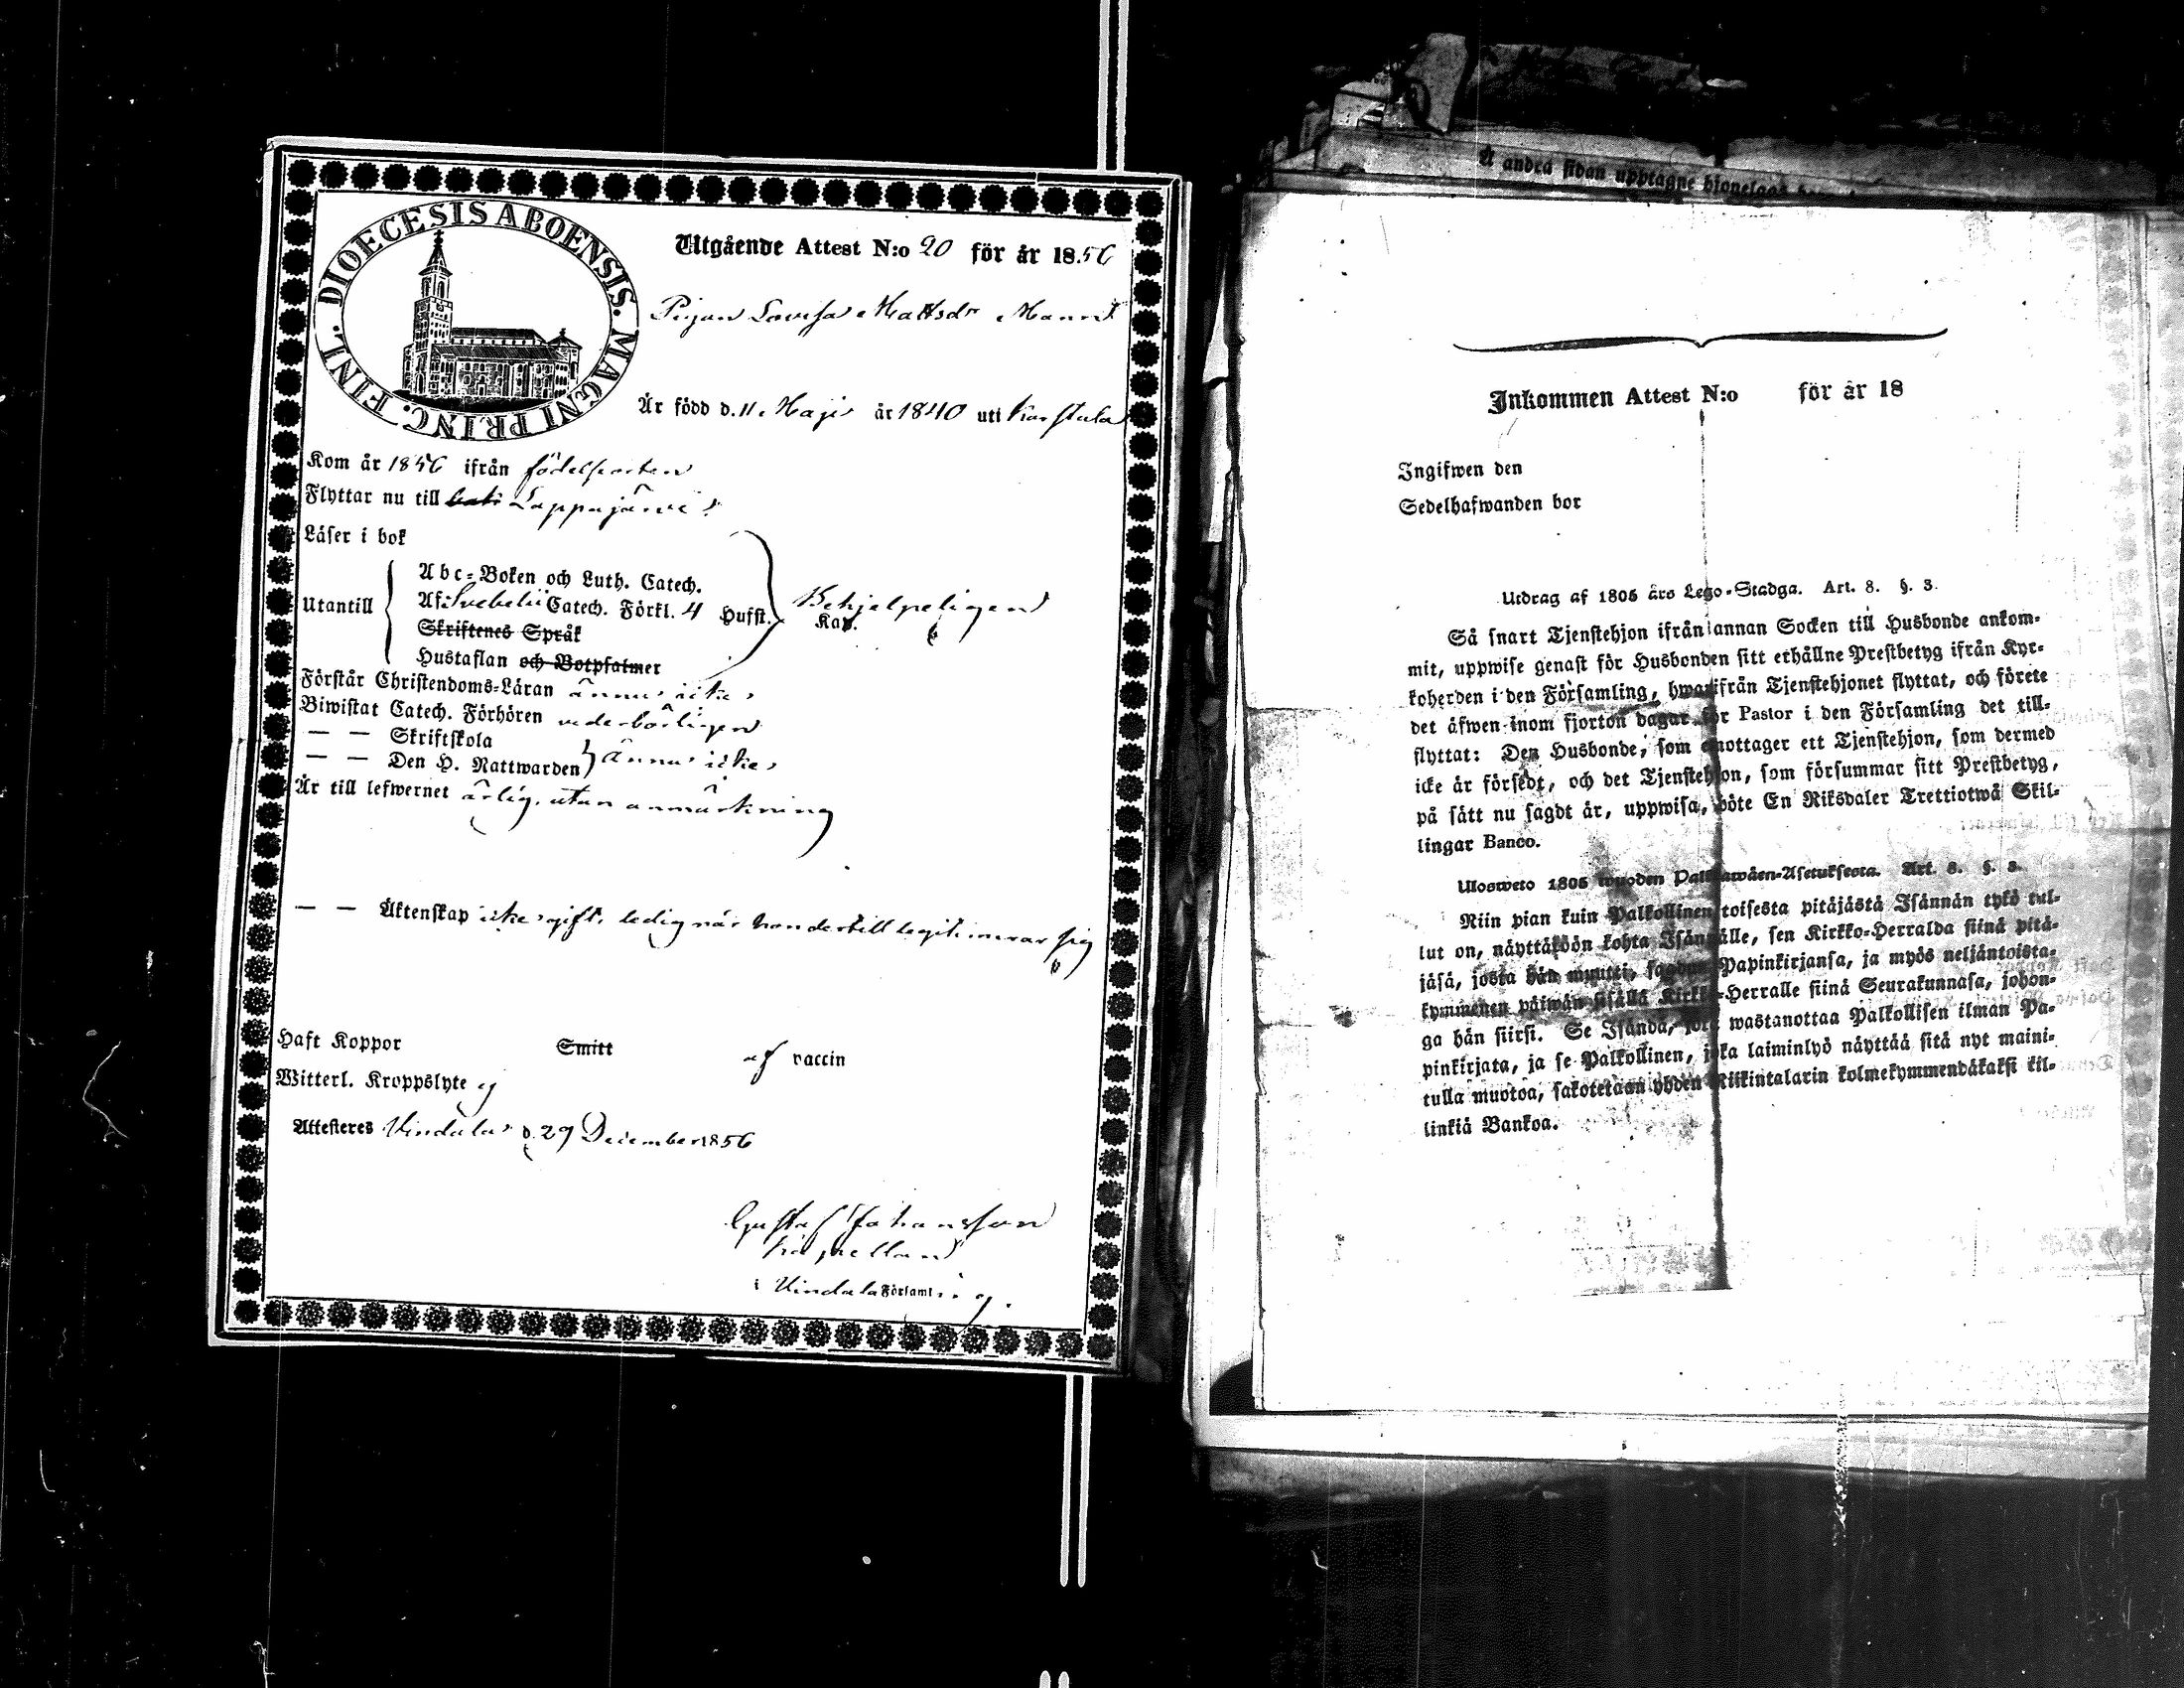 DIOECESIS ABOENSIS. MAGNI PRINC. FINL.
Utgående Attest N:o 20 för år 1856
Pigan Lovisa Mattsdr
Är född d. 11 Maji år 1840 uti Karstula
Kom år 1856 ifrån födelseorten
Flyttar nu till Lappajärvi
Läser i bok
Abc-Boken och Luth. Catech.
Utantill
Af Svebelii Catech. Förkl. 4 Hufst.
Behjelpeligen
Kap.
Skriftenes Språk
Hustaflan och Botpsalmer
Förstår Christendoms-Läran ännu icke
Biwistat Catech. Förhören vederbörligen
— — Skriftskola
— — Den H. Nattwarden ännu icke
Är till lefwernet ärlig, utan anmärkning
— — Äktenskap icke gift, ledig när hon dertill legitimerar sig
Haft Koppor Smitt af vaccin
Witterl. Kroppslyte ej
Attesteras Vindala d. 29 December 1856
Gustaf Johansson
Kapellan
i Vindala Församling.
Å andra sidan upptagne hjonelags
Inkommen Attest N:o för år 18
Ingifwen den
Sedelhafwanden bor
Utdrag af 1805 års Lego-Stadga. Art. 8. §. 3.
Så snart Tjenstehjon ifrån annan Socken till Husbonde ankom-
mit, uppwise genast för Husbonden sitt erhållne Prestbetyg ifrån Kyr-
koherden i den Församling, hwarifrån Tjenstehjonet flyttat, och förete
det äfwen inom fjorton dagar för Pastor i den Församling det till-
flyttat: Den Husbonde, som emottager ett Tjenstehjon, som dermed
icke är försedt, och det Tjenstehjon, som försummar sitt Prestbetyg,
på sätt nu sagdt är, uppwisa, böte En Riksdaler Trettiotwå Skil-
lingar Banco.
Ulosweto 1805 wuoden Palkkawäen-Asetuksesta. Art. 8. §. 3.
Niin pian kuin Palkollinen toisesta pitäjästä Isännän tykö tul-
lut on, näyttäköön kohta Isännälle, sen Kirkko-Herralda siinä pitä-
jäsä, josta hän muutti, saadun Papinkirjansa, ja myös neljäntoista-
kymmenen päiwän sisällä Kirkko-Herralle siinä Seurakunnasa, johon-
ga hän siirsi. Se Isändä, joka wastanottaa Palkollisen ilman Pa-
pinkirjata, ja se Palkollinen, joka laiminlyö näyttää sitä nyt maini-
tulla muotoa, sakotetaan yhden Riikintalarin kolmekymmendäkaksi kil-
linkiä Bankoa.